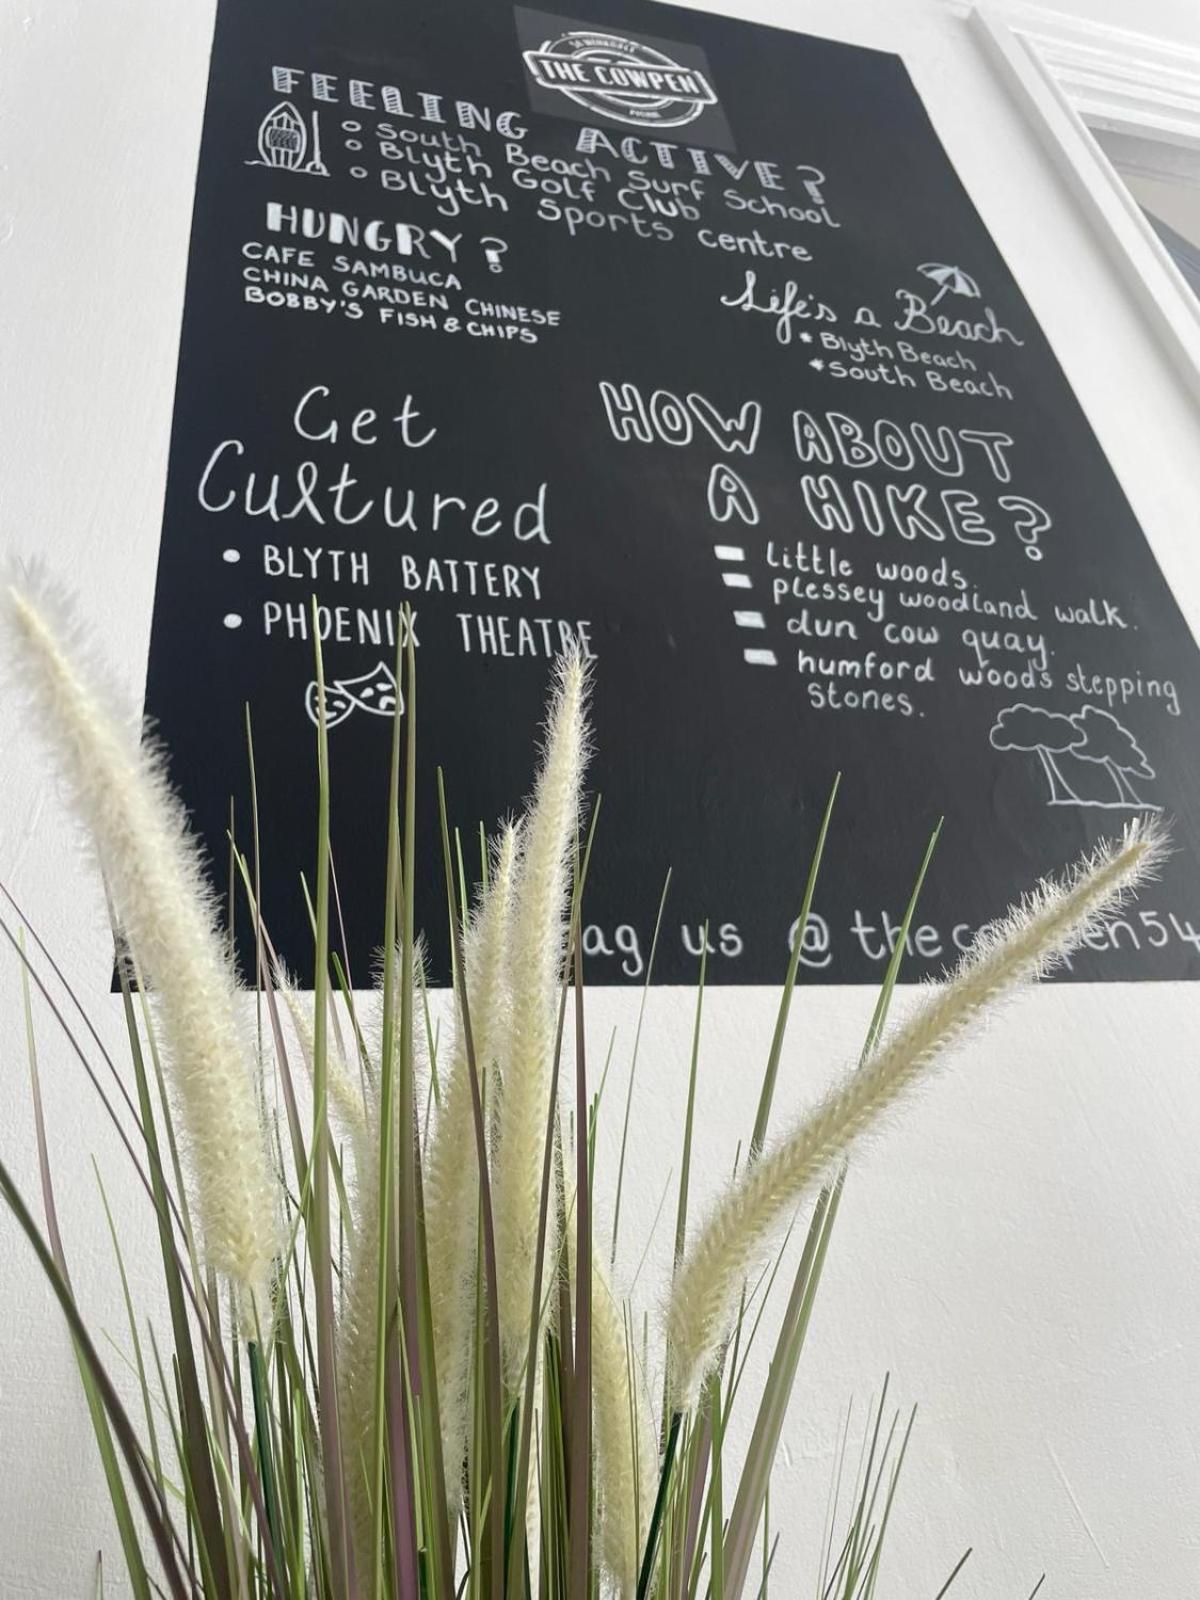 THE COWPEN
FEELING ACTIVE?
South Beach Surf School
Blyth Golf Club
Blyth Sports centre
HUNGRY?
CAFE SAMBUCA
CHINA GARDEN CHINESE
BOBBY'S FISH & CHIPS
Life's a Beach
* Blyth Beach
* South Beach
Get
Cultured
• BLYTH BATTERY
• PHOENIX THEATRE
HOW ABOUT
A HIKE?
little woods.
plessey woodland walk.
dun cow quay.
humford woods stepping
stones.
us @